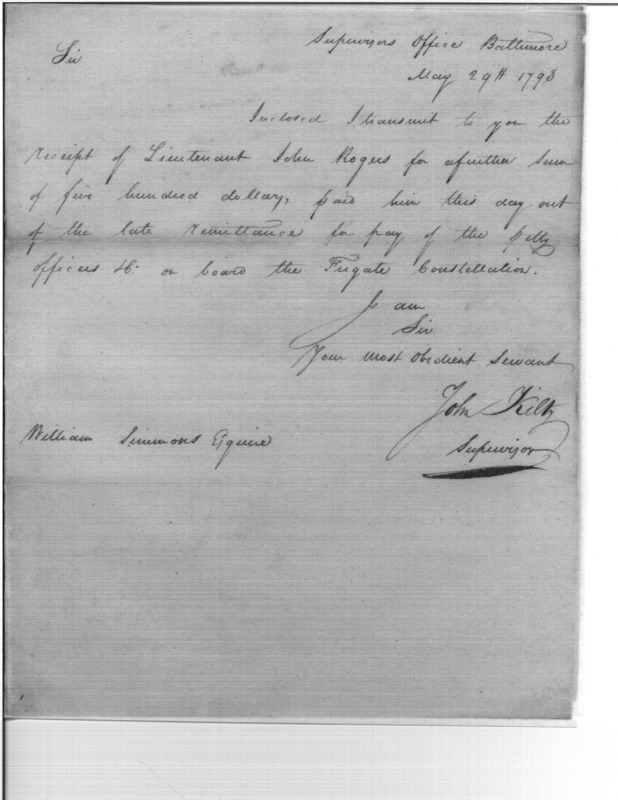 Supervisors Office Baltimore
May 29th 1798
Sir
Inclosed I transmit to you the
receipt of Lieutenant John Rogers for a further sum
of five hundred dollars, paid him this day out
of the late remittance for pay of the petty
officers &c: on board the Frigate Constellation.
I am
Sir
Your most Obedient Servant
John Kilty
Supervisor
William Simmons Esquire